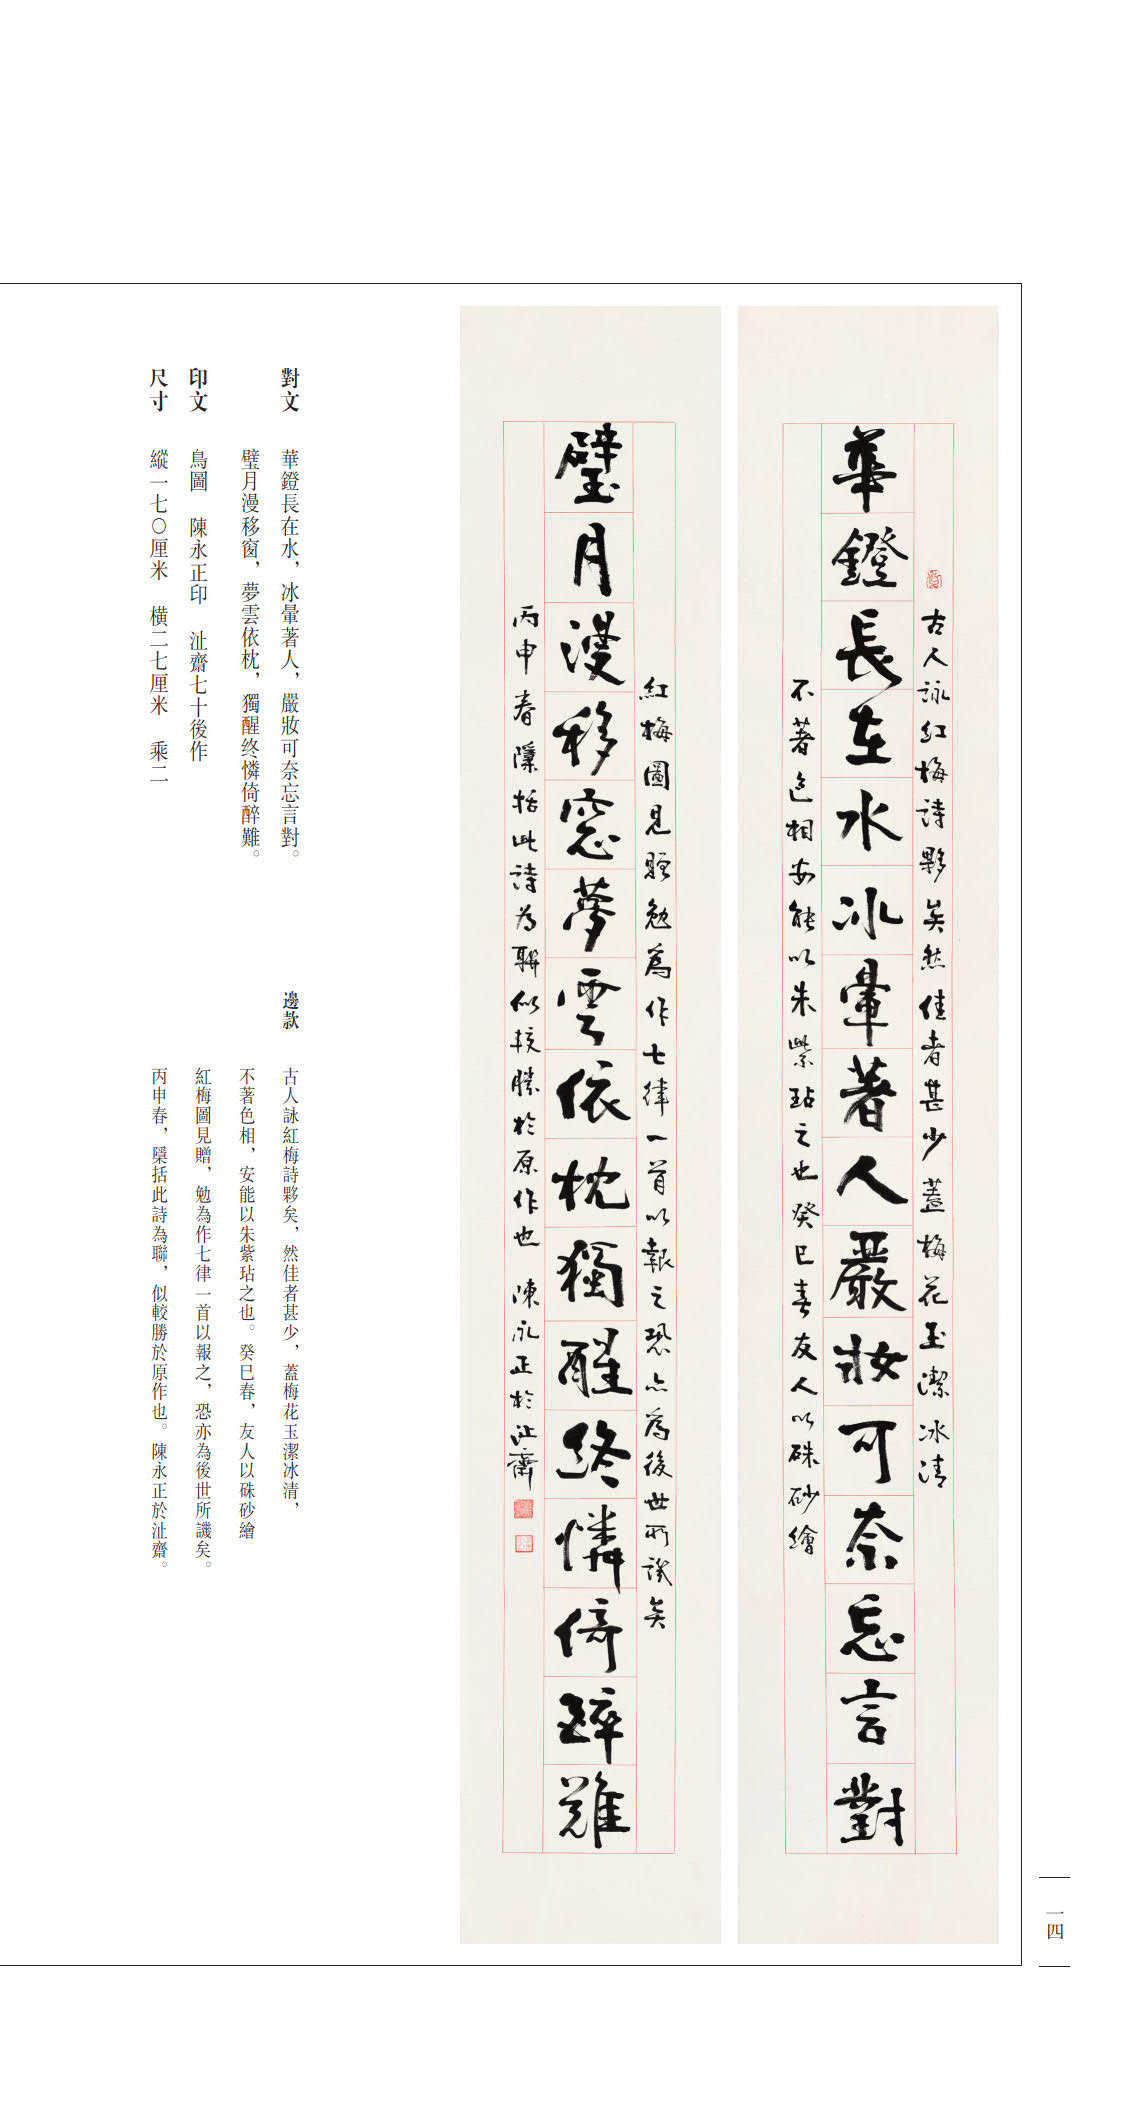 華鐙長在水冰暈著人嚴妝可奈忘言對
古人詠紅梅詩夥矣然佳者甚少蓋梅花玉潔冰清
不著色相安能以朱紫玷之也癸巳春友人以硃砂繪
璧月漫移窗夢雲依枕獨醒終憐倚醉難
紅梅圖見贈勉為作七律一首以報之恐亦為後世所譏矣
丙申春檃括此詩為聯似較勝於原作也 陳永正於沚齋
對文 華鐙長在水，冰暈著人，嚴妝可奈忘言對。
璧月漫移窗，夢雲依枕，獨醒终憐倚醉難。
印文 鳥圖 陳永正印 沚齋七十後作
尺寸 縱一七〇厘米 横二七厘米 乘二
邊款 古人詠紅梅詩夥矣，然佳者甚少，蓋梅花玉潔冰清，
不著色相，安能以朱紫玷之也。癸巳春，友人以硃砂繪
紅梅圖見贈，勉為作七律一首以報之，恐亦為後世所譏矣。
丙申春，檃括此詩為聯，似較勝於原作也。陳永正於沚齋。
一四